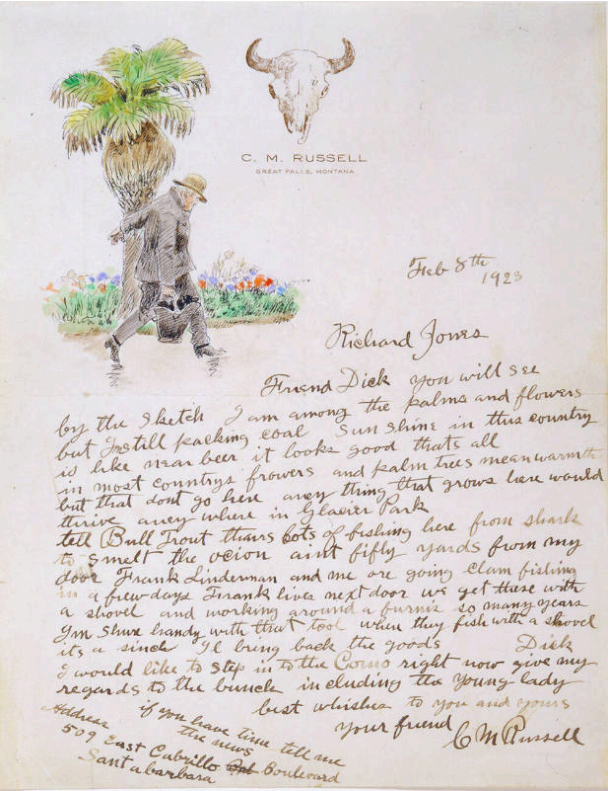 C. M. RUSSELL
GREAT FALLS, MONTANA
Feb 8th
1923
Richard Jones
Friend Dick you will see
by the sketch I am among the palms and flowers
but Im still packing coal Sun shine in this country
is like near beer it looks good thats all
in most countrys frowers and palm trees mean warmth
but that dont go here aney thing that grows here would
thrive aney where in Glacier Park
tell Bull Trout thairs lots of fishing here from shark
to smelt the ocion aint fifty yards from my
door Frank Linderman and me are going clam fishing
in a few days Frank lives next door we get these with
a shovel and working around a furnis so many years
Im shure handy with that tool when they fish with a shovel
its a sinch Il bring back the goods Dick
I would like to step in to the Como right now give my
regards to the bunch including the young lady
best whishes to you and yours
your friend
C M Russell
if you have time tell me
the news
Address
509 East Cabrillo Boulevard
Santa barbara